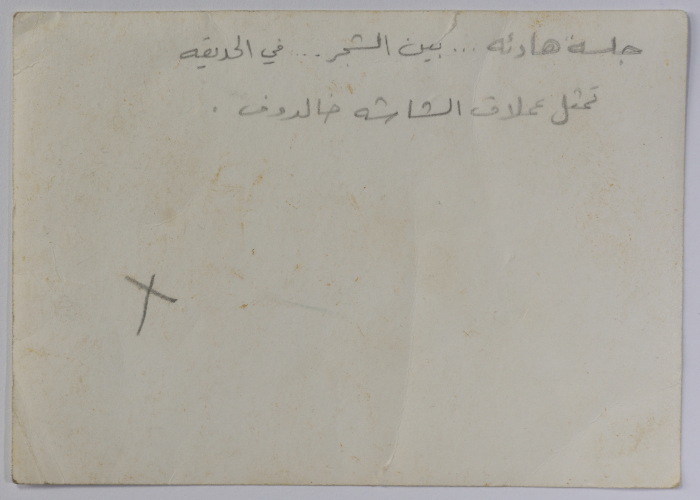 جلسة هادئه ... بين الشجر ... في الحديقه
تمثل عملاق الشاشه خالدوف .